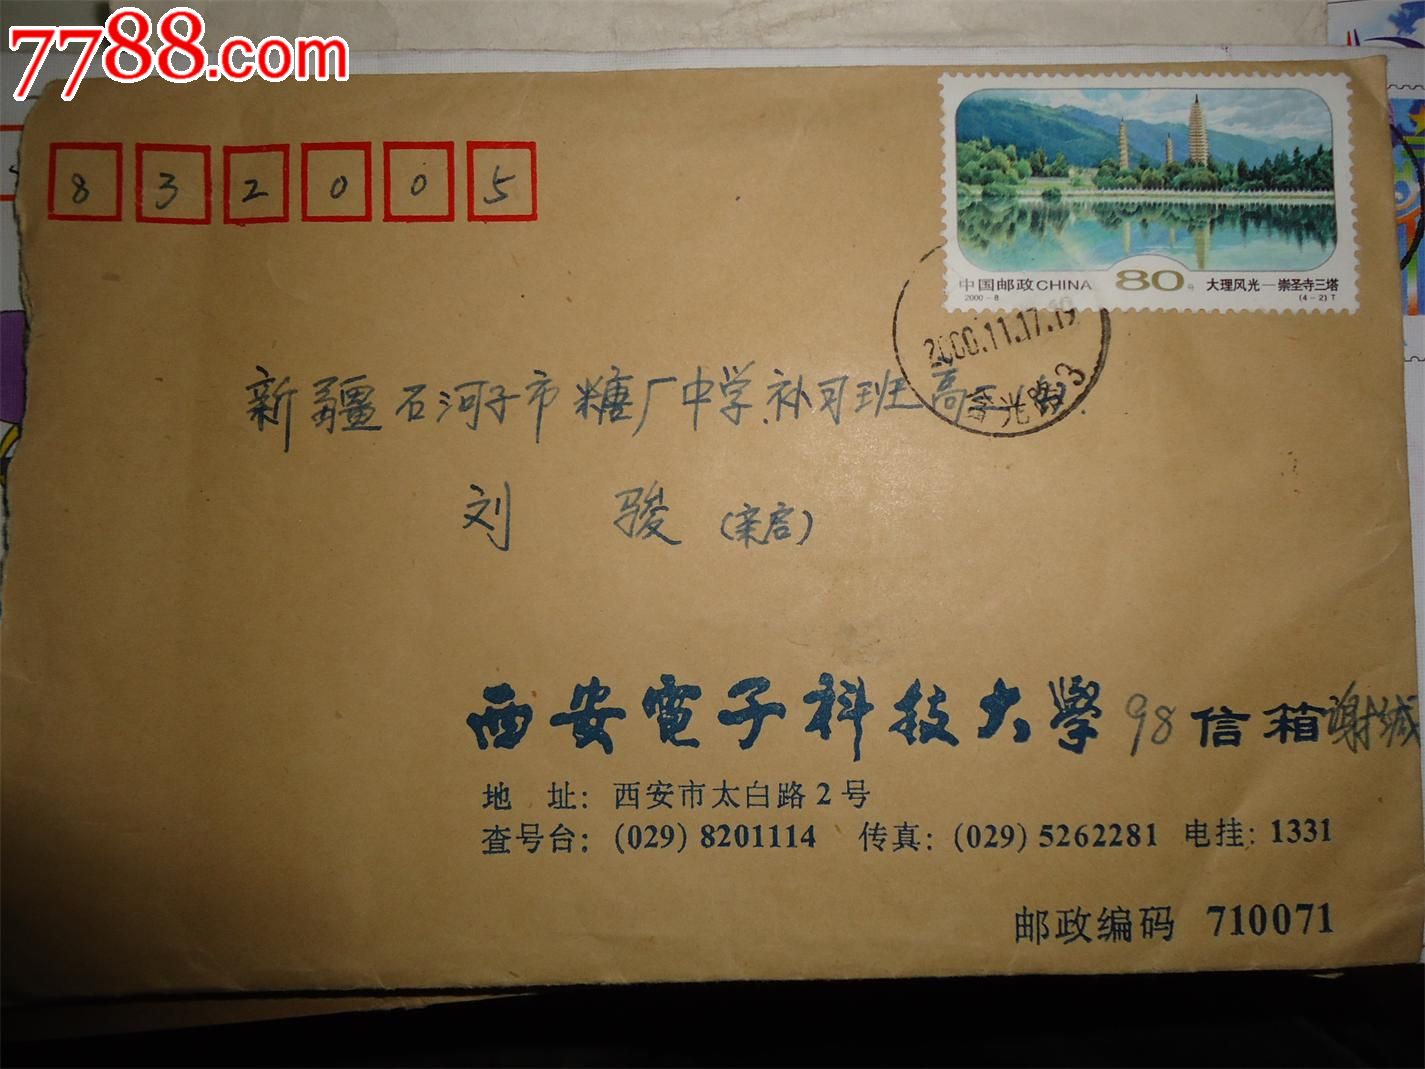 7788.com
832005
中国邮政CHINA 80分 大理风光—崇圣寺三塔
2000-8 (4-2)T
2000.11.17.19
新疆石河子市糖厂中学.补习班高三
刘 骏(亲启)
西安電子科技大學 98 信箱 谢城
地 址: 西安市太白路2号
查号台: (029) 8201114 传真: (029) 5262281 电挂: 1331
邮政编码 710071